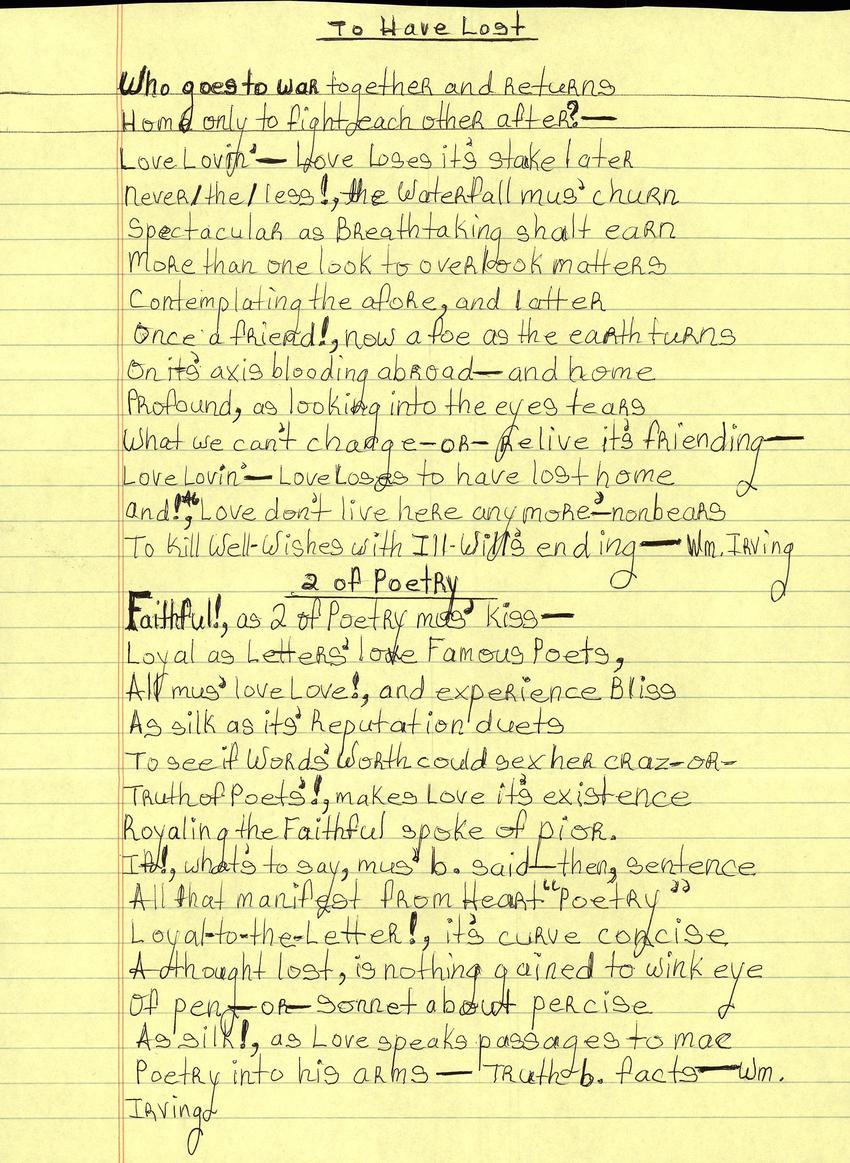 To Have Lost
Who goes to war together and returns
Home only to fight each other after?—
Love Lovin'— Love loses it's stake later
never/the/less!, the Waterfall mus' churn
Spectacular as Breathtaking shalt earn
More than one look to overlook matters
Contemplating the afore, and latter
Once a friend!, now a foe as the earth turns
On it's axis blooding abroad—and home
Profound, as looking into the eyes tears
What we can't change-or-relive it's friending—
Love Lovin'— Love Loses to have lost home
and!, "Love don't live here any more"-nonbears
To Kill Well-Wishes with Ill-Will's ending— Wm. Irving
2 of Poetry
Faithful!, as 2 of Poetry mus' kiss—
Loyal as Letters' love Famous Poets,
All mus' love Love!, and experience Bliss
As silk as its' Reputation duets
To see if Words' Worth could sex her craz-or-
Truth of Poets'!, makes Love it's existence
Royaling the Faithful spoke of pior.
It!, what's to say, mus' b. said—then, sentence
All that manifest from Heart "Poetry"
Loyal-to-the-Letter!, it's curve concise
A thought lost, is nothing gained to wink eye
Of pen,-or-sonnet about percise
As silk!, as Love speaks passages to mae
Poetry into his arms— Truth b. facts—Wm.
Irving